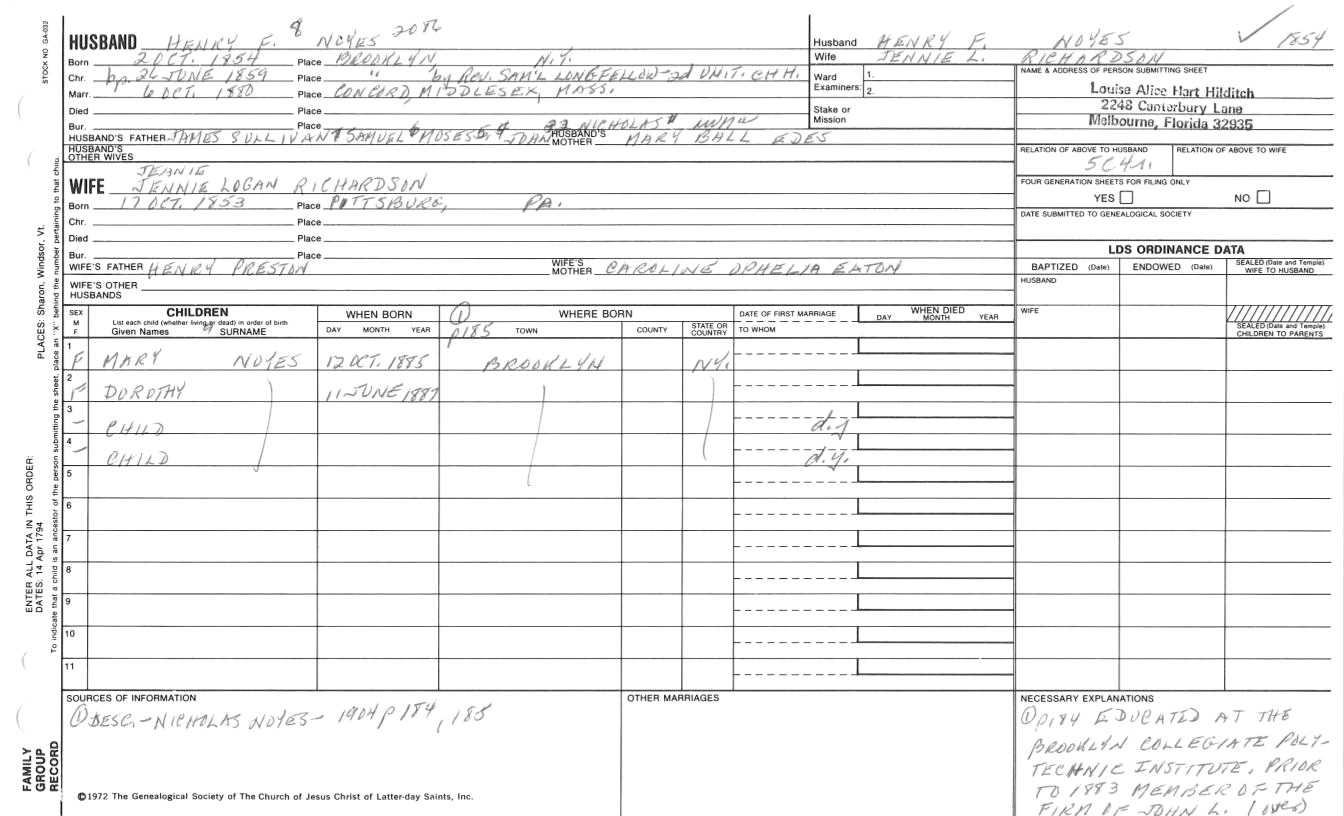 STOCK NO GA-032
HUSBAND HENRY F. 8 NOYES 2086
Born 2 OCT. 1854 Place BROOKLYN, N.Y.
Chr. bp. 26 JUNE 1859 Place " by REV. SAM'L LONGFELLOW-2d UNIT. CHH.
Marr. 6 OCT. 1880 Place CONCORD, MIDDLESEX, MASS.
Died Place
Bur. Place
HUSBAND'S FATHER JAMES SULLIVAN 7 SAMUEL 6 MOSES 5, 4 JOHN 23 NICHOLAS
HUSBAND'S MOTHER MARY BALL EDES
HUSBAND'S OTHER WIVES
JEANIE
WIFE JENNIE LOGAN RICHARDSON
Born 17 OCT. 1853 Place PITTSBURG, PA.
Chr. Place
Died Place
Bur. Place
WIFE'S FATHER HENRY PRESTON WIFE'S MOTHER CAROLINE OPHELIA EATON
WIFE'S OTHER HUSBANDS
Husband HENRY F. NOYES ✓ 1854
Wife JENNIE L. RICHARDSON
Ward Examiners: 1. 2.
Stake or Mission
NAME & ADDRESS OF PERSON SUBMITTING SHEET
Louise Alice Hart Hilditch
2248 Canterbury Lane
Melbourne, Florida 32935
RELATION OF ABOVE TO HUSBAND RELATION OF ABOVE TO WIFE
5C4r.
FOUR GENERATION SHEETS FOR FILING ONLY
YES NO
DATE SUBMITTED TO GENEALOGICAL SOCIETY
LDS ORDINANCE DATA
BAPTIZED (Date) ENDOWED (Date) SEALED (Date and Temple) WIFE TO HUSBAND
HUSBAND
WIFE
SEALED (Date and Temple) CHILDREN TO PARENTS
SEX M F
CHILDREN
List each child (whether living or dead) in order of birth
Given Names SURNAME
WHEN BORN
DAY MONTH YEAR
① p185
WHERE BORN
TOWN COUNTY STATE OR COUNTRY
DATE OF FIRST MARRIAGE
TO WHOM
WHEN DIED
DAY MONTH YEAR
1 F MARY NOYES 12 OCT. 1885 BROOKLYN N.Y.
2 F DOROTHY 11 JUNE 1887
3 – CHILD d.y
4 – CHILD d.y.
5
6
7
8
9
10
11
SOURCES OF INFORMATION
① DESC.-NICHOLAS NOYES- 1904 p 184, 185
OTHER MARRIAGES
NECESSARY EXPLANATIONS
① p184 EDUCATED AT THE
BROOKLYN COLLEGIATE POLY-
TECHNIC INSTITUTE. PRIOR
TO 1883 MEMBER OF THE
FIRM OF JOHN L. (over)
©1972 The Genealogical Society of The Church of Jesus Christ of Latter-day Saints, Inc.
FAMILY
GROUP
RECORD
ENTER ALL DATA IN THIS ORDER:
DATES: 14 Apr 1794
PLACES: Sharon, Windsor, Vt.
To indicate that a child is an ancestor of the person submitting the sheet, place an "X" behind the number pertaining to that child.